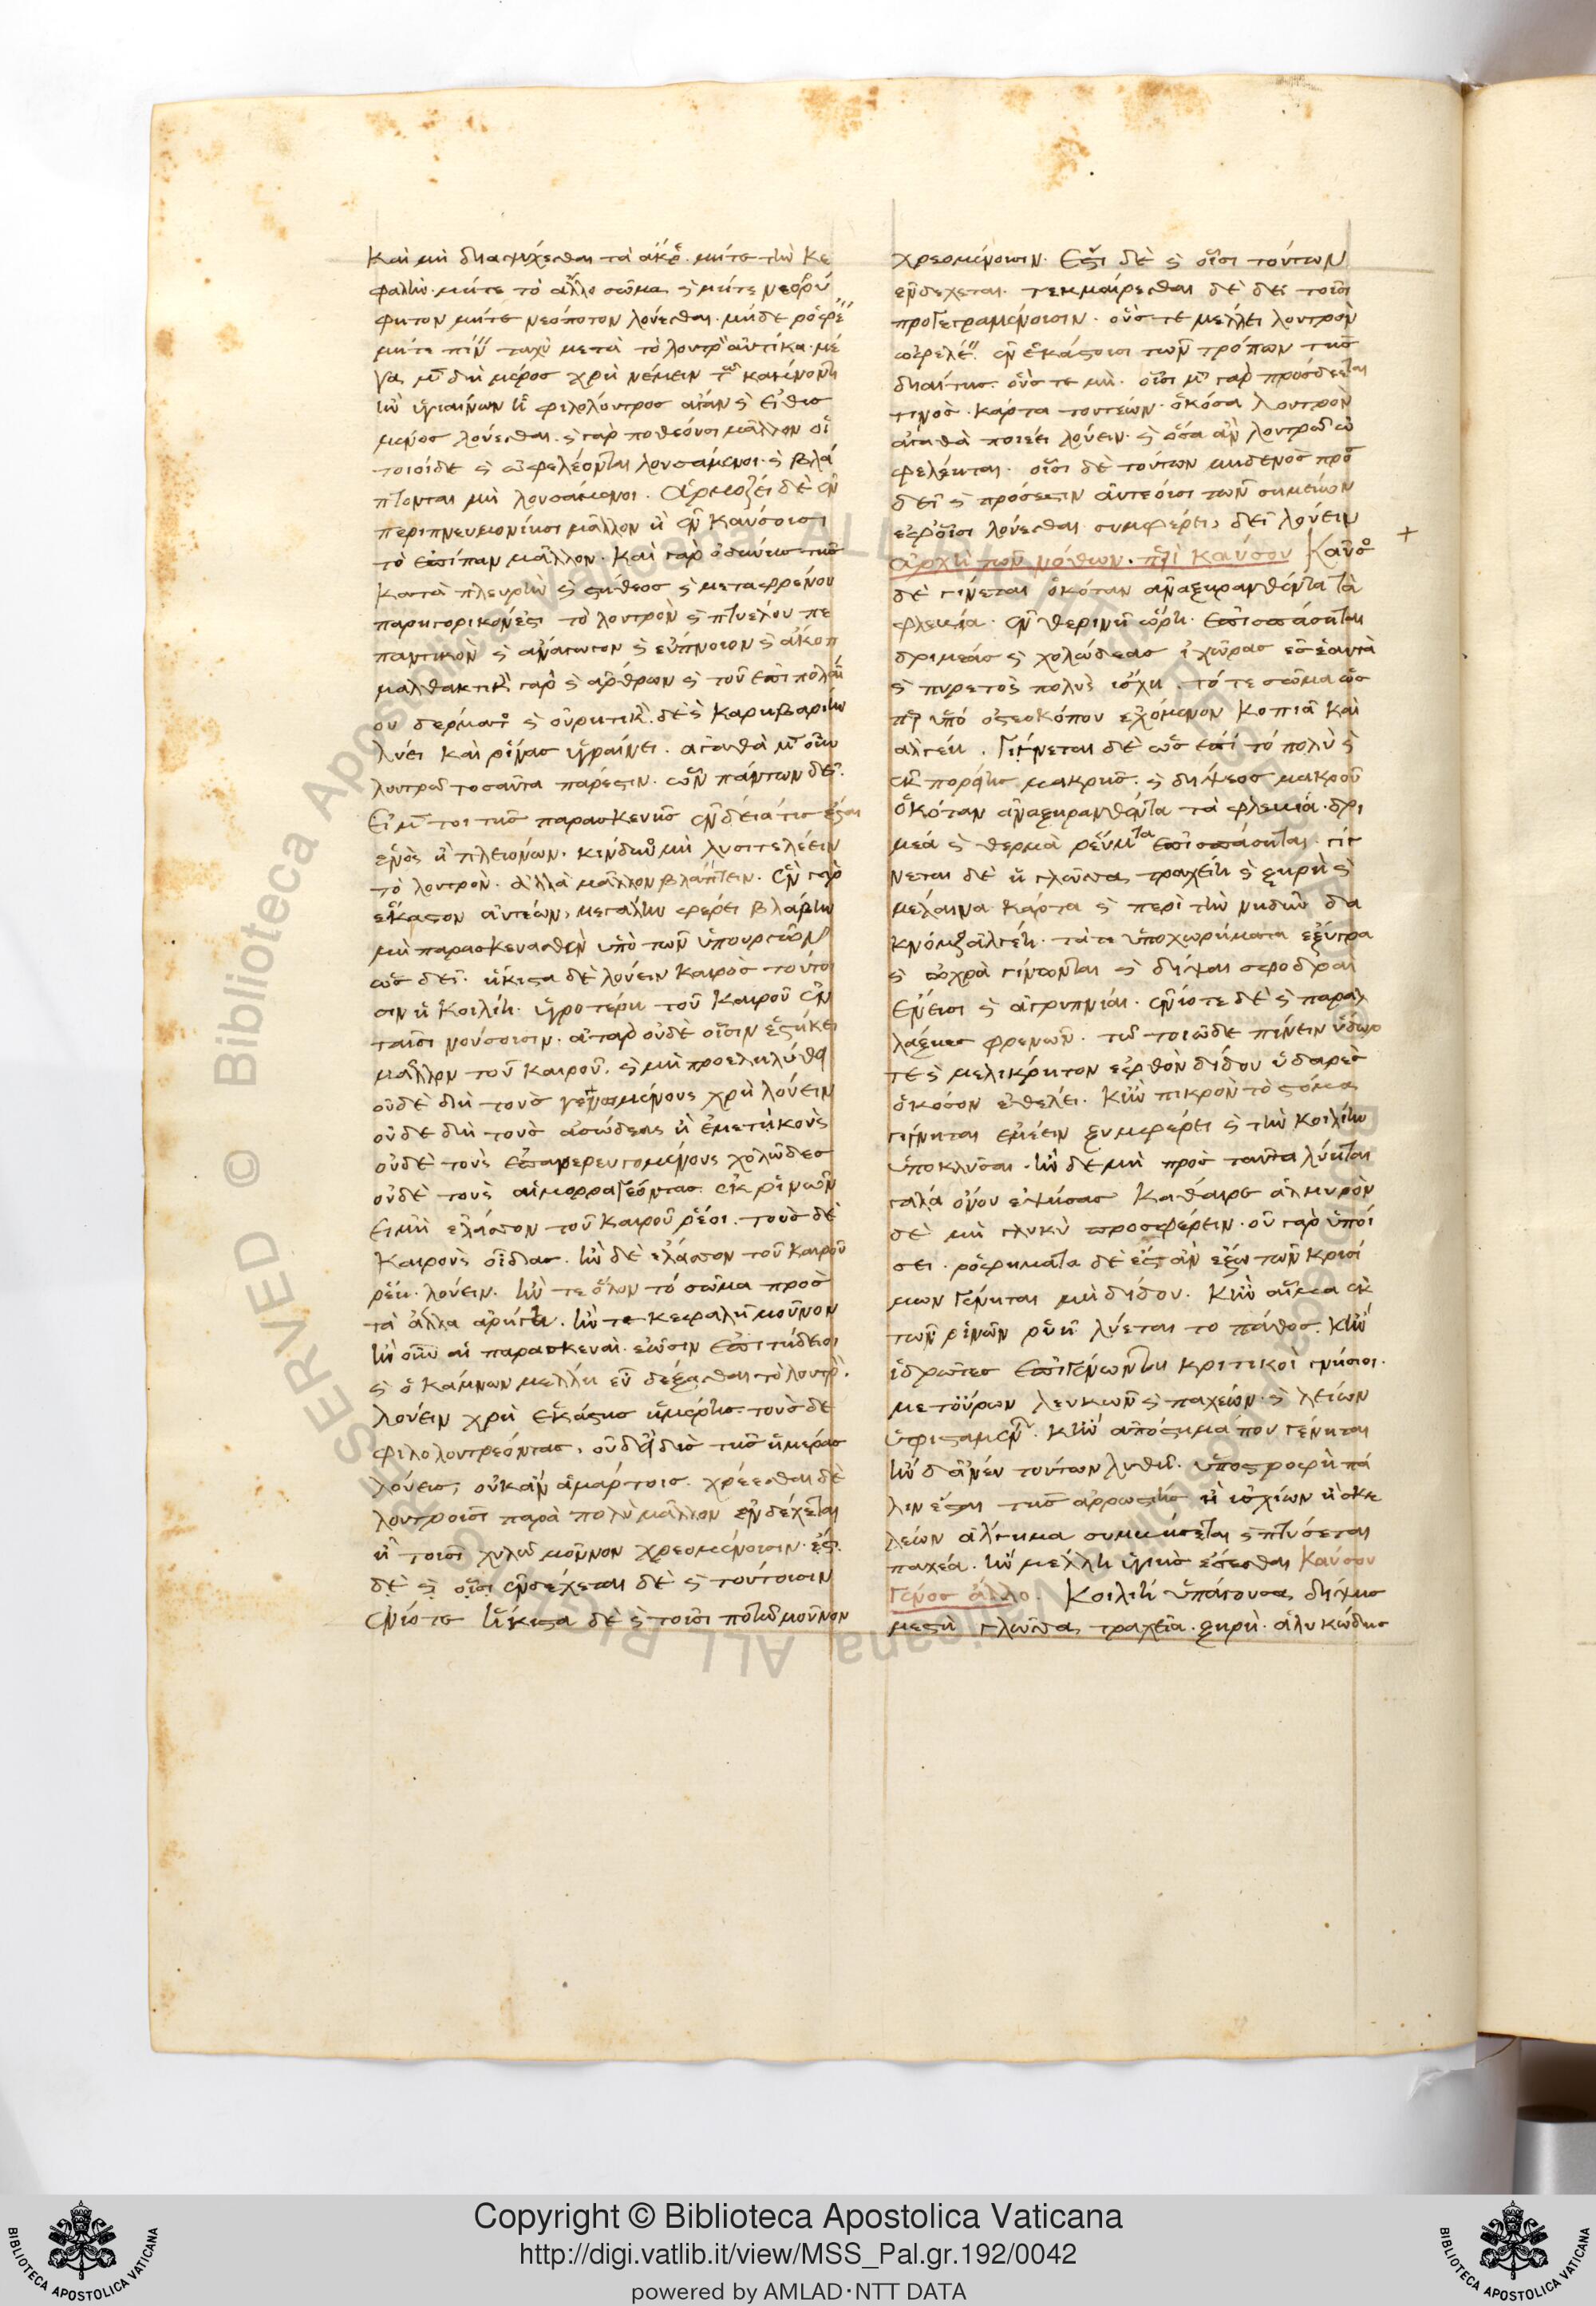 καὶ μὴ διαψύχεσθαι τὰ ἄκρ. μήτε τὴν κε
φαλὴν. μήτε τὸ ἄλλο σῶμα καὶ μήτε νεορρύ
φητον μήτε νεόποτον λούεσθαι. μηδὲ ῥοφέ
μήτε πίν ταχὺ μετὰ τὸ λουτρ αὐτίκα. μέ
γα μν δὴ μέρος χρὴ νέμειν τῷ κάμνοντι
ἢν ὑγιαίνων ἦ φιλόλουτρος ἄγαν καὶ εἰθισ
μένος λούεσθαι. καὶ γὰρ ποθέουσι μᾶλλον οἱ
τοιοίδε καὶ ὠφελέονται λουσάμενοι. καὶ βλά
πτονται μὴ λουσάμενοι. ἁρμόζει δὲ ἐν
περιπνευμονίησι μᾶλλον ἢ ἐν καύσοισι
τὸ ἐπίπαν μᾶλλον. καὶ γὰρ ὀδύνης τῆς
κατὰ πλευρὴν καὶ στήθεος καὶ μεταφρένου
παρηγορικόν ἐστι τὸ λουτρὸν καὶ πτυέλου πε
παντικὸν καὶ ἀνάγωγον καὶ εὔπνοιον καὶ ἄκοπ
μαλθακτικ γὰρ καὶ ἄρθρων καὶ τοῦ ἐπιπολαί
ου δέρματ καὶ οὐρητικ. δὲ καὶ καρηβαρίην
λύει καὶ ῥῖνας ὑγραίνει. ἀγαθὰ μν οὖν
λουτρῷ τοσαῦτα πάρεστιν. ὧν πάντων δεῖ.
εἰ μν τοι τῆς παρασκευῆς ἔνδειά τις ἔσται
ἑνὸς ἢ πλειόνων. κίνδυν μὴ λυσιτελέειν
τὸ λουτρὸν. ἀλλὰ μᾶλλον βλάπτειν. ἓν γὰρ
ἕκαστον αὐτέων, μεγάλην φέρει βλάβην
μὴ παρασκευασθὲν ὑπὸ τῶν ὑπουργῶν
ὡς δεῖ. ἥκιστα δὲ λούειν καιρὸς τούτοι
σιν ἡ κοιλίη. ὑγροτέρη τοῦ καιροῦ ἐν
ταῖσι νούσοισιν. ἀτὰρ οὐδὲ οἷσιν ἑστήκει
μᾶλλον τοῦ καιροῦ. καὶ μὴ προεληλύθῃ
οὐδὲ δὴ τοὺς γεγυιωμένους χρὴ λούειν
οὐδὲ δὴ τοὺς ἀσώδεας ἢ ἐμετηκοὺς
οὐδὲ τοὺς ἐπανερευγομένους χολῶδες
οὐδὲ τοὺς αἱμορραγέοντας ἐκ ῥινῶν
εἰ μὴ ἔλασσον τοῦ καιροῦ ῥέοι. τοὺς δὲ
καιροὺς οἶδας. ἢν δὲ ἔλασσον τοῦ καιροῦ
ῥέῃ. λούειν. ἤν τε ὅλον τὸ σῶμα πρὸς
τὰ ἄλλα ἀρήγῃ. ἤν τε κεφαλὴν μοῦνον
ἢν οὖν αἱ παρασκευαὶ. ἔωσιν ἐπιτήδειοι
καὶ ὁ κάμνων μέλλῃ εὖ δέξασθαι τὸ λουτρ.
λούειν χρὴ ἑκάστης ἡμέρης. τοὺς δὲ
φιλολουτρέοντας, οὐδ εἰ δὶς τῆς ἡμέρας
λούεις, οὐκ ἂν ἁμάρτοις. χρέεσθαι δὲ
λουτροῖσι παρὰ πολὺ μᾶλλον ἐνδέχεται
ἢ τοῖσι χυλῷ μοῦνον χρεομένοισιν. ἔστι
δὲ καὶ οἷσι ἐνδέχεται δὲ καὶ τουτοισιν
ἐνίοτε ἥκιστα δὲ καὶ τοῖσι ποτῷ μοῦνον
χρεομένοισιν. ἔστι δὲ καὶ οἷσι τούτων
ἐνδέχεται. τεκμαίρεσθαι δὲ δεῖ τοῖσι
προγεγραμένοισιν. οὕς τε μέλλει λουτρὸν
ὠφελέ. ἐν ἑκάστοισι τῶν τρόπων τῆς
διαίτης. οὕς τε μὴ. οἷσι μν γὰρ προσδεῖται
τινὸς. κάρτα τουτεών. ὁκόσα λουτρὸν
ἀγαθὰ ποιέει λούειν. καὶ ὅσα ἂν λουτρῷ ὠ
φελέηται. οἷσι δὲ τούτων μηδενὸς προσ
δεῖ καὶ πρόσεστιν αὐτεοῖσι τῶν σημείων
ἐφ' οἷσι λούεσθαι συμφέρει, δεῖ λούειν
ἀρχὴ τῶν νόθων. περὶ καύσου Καῦσ
δὲ γίνεται ὁκόταν ἀναξηρανθέντα τὰ
φλέβια. ἐν θερινῇ ὥρῃ. ἐπισπάσηται
δριμέας καὶ χολώδεας ἰχῶρας ἐς ἑαυτὰ
καὶ πυρετὸς πολὺς ἴσχῃ. τό τε σῶμα ὡς
περ ὑπό ὀστεοκόπου ἐχόμενον κοπιᾷ καὶ
ἀλγέει. γίγνεται δὲ ὡς ἐπί τὸ πολὺ καὶ
ἐκ πορείης μακρῆς. καὶ δίψεος μακροῦ
ὁκόταν ἀναξηρανθέντα τὰ φλέβια. δρι
μέα καὶ θερμὰ ῥεύματα ἐπισπάσηται. γίγ
νεται δὲ ἡ γλῶσσα τραχείη καὶ ξηρὴ καὶ
μέλαινα κάρτα καὶ περὶ τὴν νηδὺν δα
κνόμενος ἀλγέει. τά τε ὑποχωρήματα ἔξυγρα
καὶ ὠχρὰ γίνωνται καὶ δίψαι σφοδραὶ
ἔνεισι καὶ ἀγρυπνίαι. ἐνίοτε δὲ καὶ παραλ
λάξιες φρενῶν. τῷ τοιῷδε πίνειν ὕδωρ
τε καὶ μελίκρητον ἑφθὸν δίδου ὑδαρὲς
ὁκόσον ἐθέλει. κἢν πικρὸν τὸ στόμα
γίγνηται ἐμέειν ξυμφέρει καὶ τὴν κοιλίην
ὑποκλύσαι. ἢν δὲ μὴ πρὸς ταῦτα λύηται
γάλα ὄνου ἑψήσας κάθαιρε ἁλμυρὸν
δὲ μὴ γλυκὺ προσφέρειν. οὐ γὰρ ὑποί
σει. ῥοφήματα δὲ ἔστ' ἂν ἔξω τῶν κρισί
μων γένηται μὴ δίδου. κἢν αἷμα ἐκ
τῶν ῥινῶν ῥυῇ λύεται τὸ πάθος. κἢν
ἱδρῶτες ἐπιγένωνται κριτικοὶ γνήσιοι.
μετ οὔρων λευκῶν καὶ παχείων. καὶ λείων
ὑφισταμέν. κἢν ἀπόστημά που γένηται
ἢν δ' ἄνευ τούτων λυθῇ. ὑποστροφὴ πά
λιν ἔσται τῆς ἀρρωστίης ἢ ἰσχίων ἢ σκε
λέων ἄλγημα συμβήσεται καὶ πτύσεται
παχέα. ἢν μέλλῃ ὑγιὴς ἔσεσθαι Καύσου
γένος ἄλλο. Κοιλίη ὑπάγουσα, δίψης
μεστὴ γλῶσσα, τραχεῖα. ξηρὴ. ἁλυκώδης
+
Copyright © Biblioteca Apostolica Vaticana
http://digi.vatlib.it/view/MSS_Pal.gr.192/0042
powered by AMLAD·NTT DATA
BIBLIOTECA APOSTOLICA VATICANA
BIBLIOTECA APOSTOLICA VATICANA
© Biblioteca Apostolica Vaticana ALL RIGHTS RESERVED